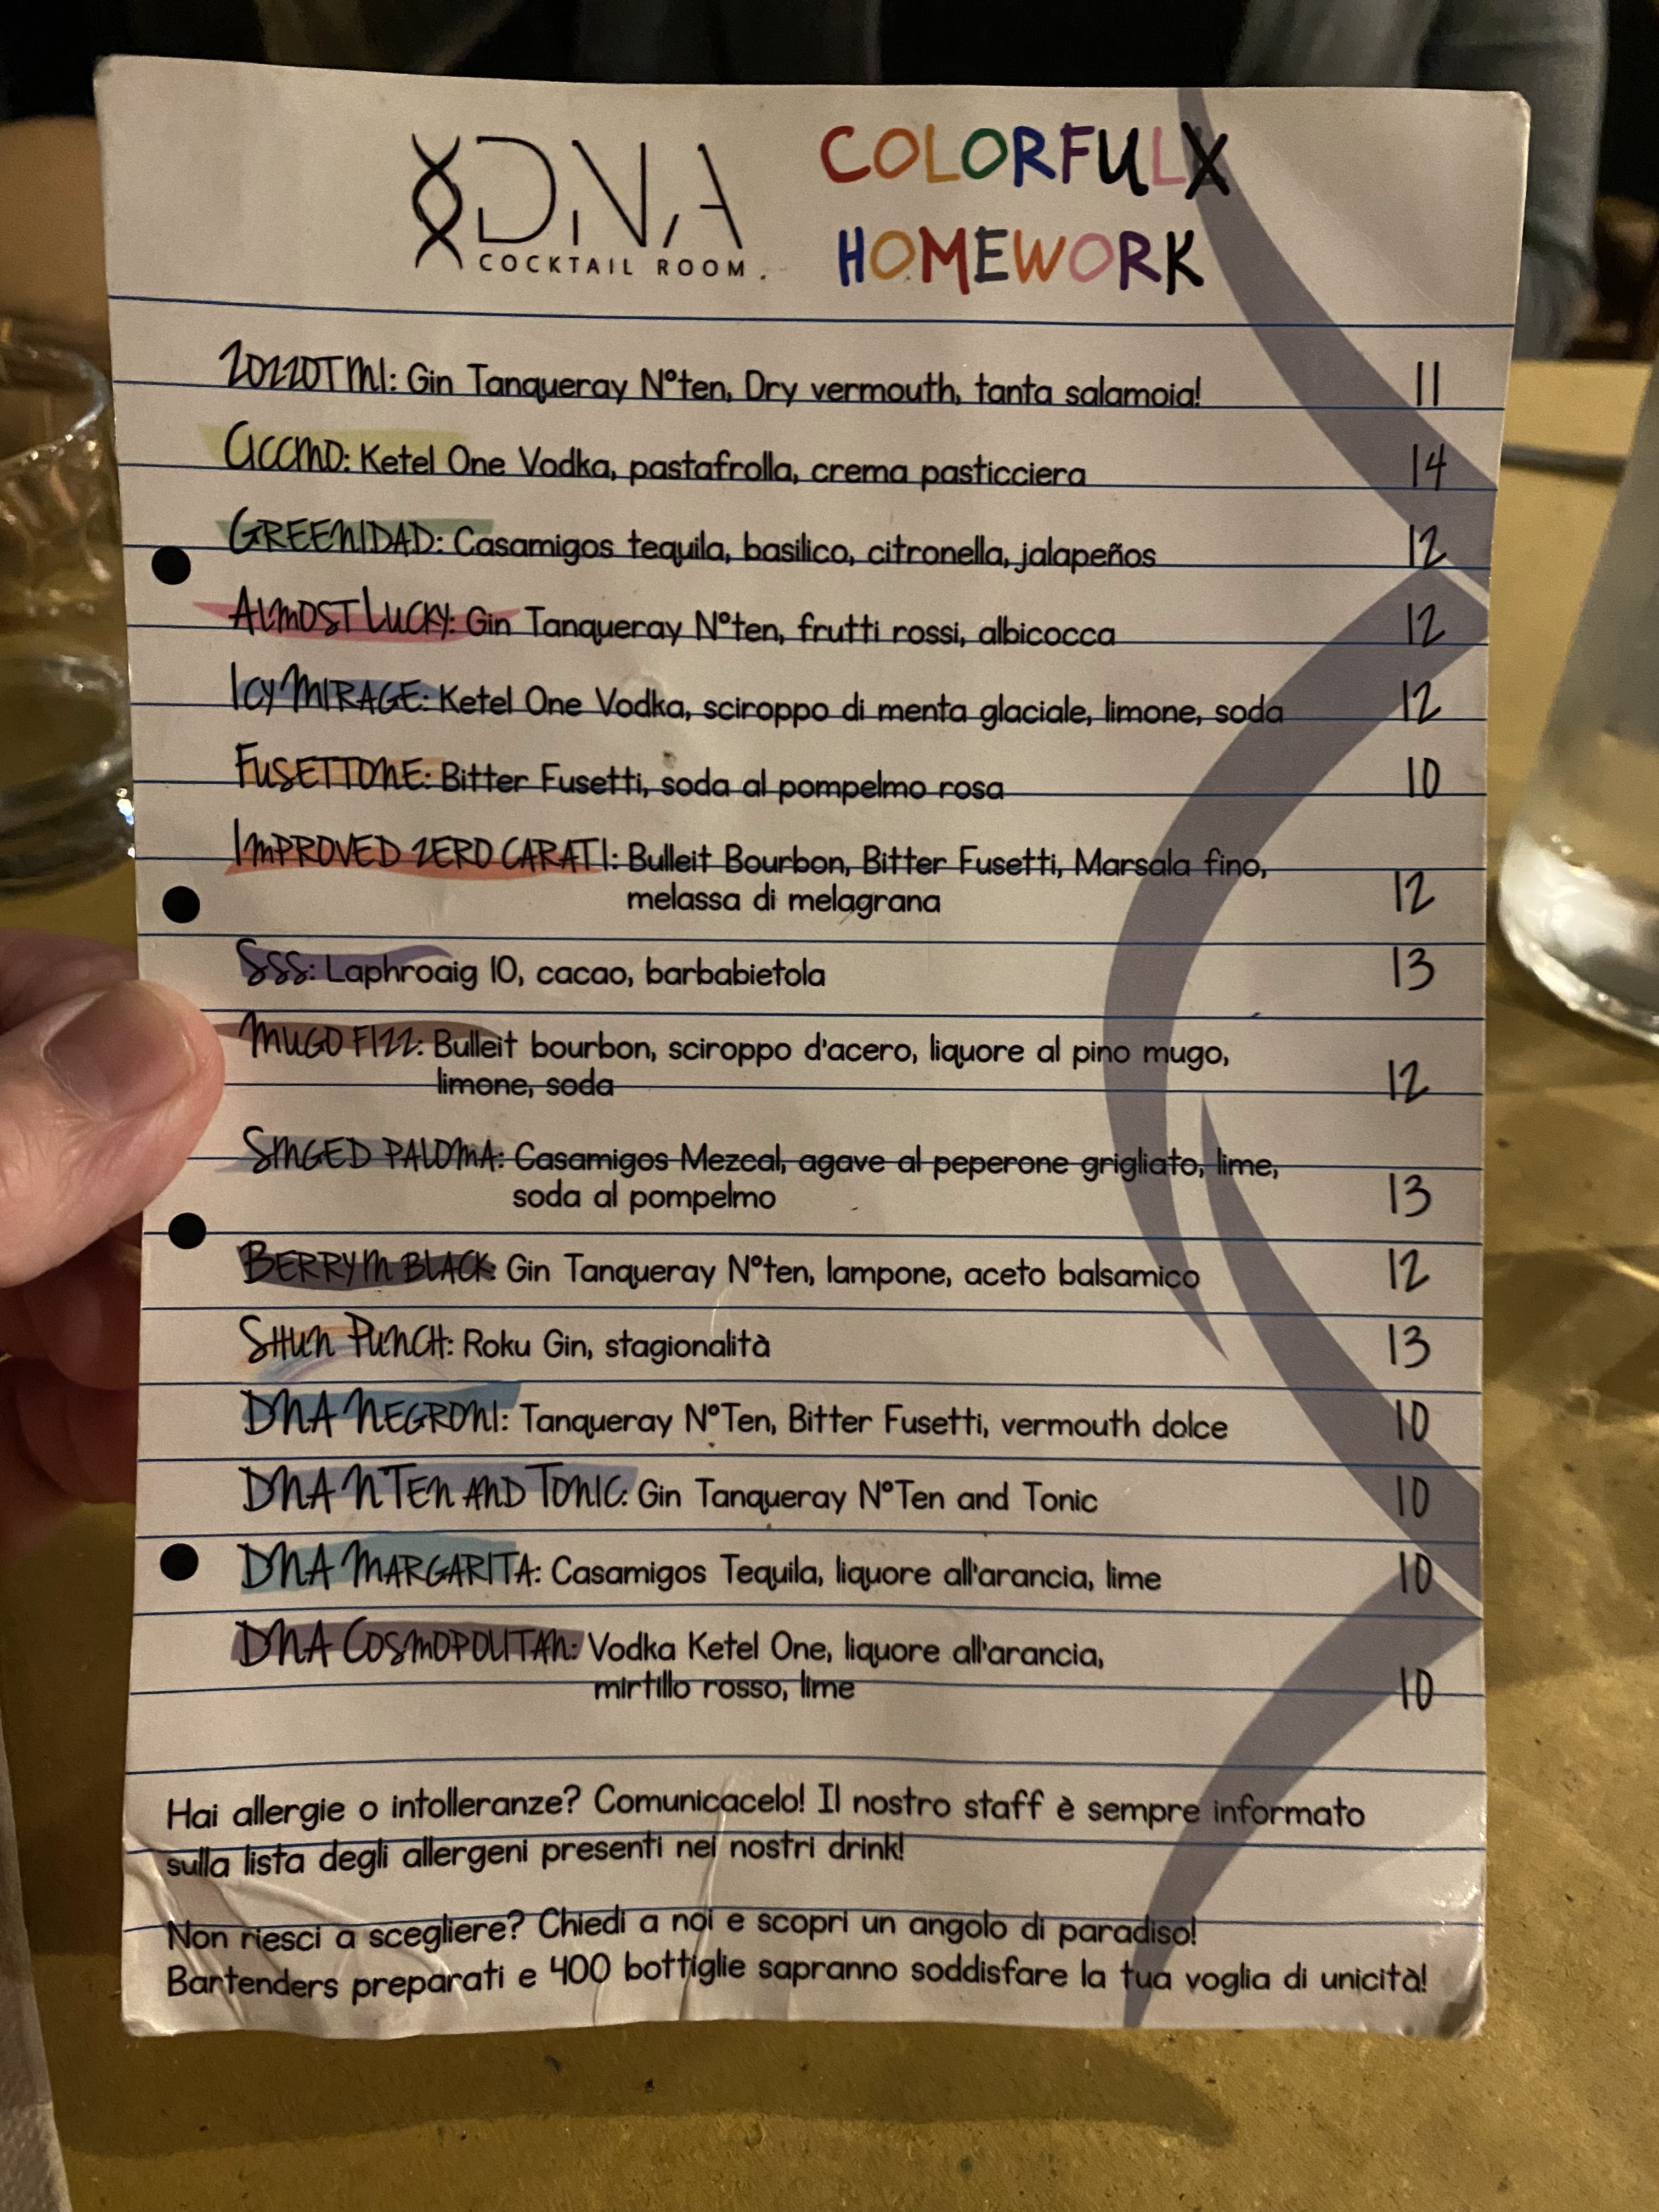 DNA
COCKTAIL ROOM.
COLORFULX
HOMEWORK
ZOZZOTINI: Gin Tanqueray N°ten, Dry vermouth, tanta salamoia! 11
CICCINO: Ketel One Vodka, pastafrolla, crema pasticciera 14
GREENIDAD: Casamigos tequila, basilico, citronella, jalapeños 12
ALMOST LUCKY: Gin Tanqueray N°ten, frutti rossi, albicocca 12
ICY MIRAGE: Ketel One Vodka, sciroppo di menta glaciale, limone, soda 12
FUSETTONE: Bitter Fusetti, soda al pompelmo rosa 10
IMPROVED ZERO CARATI: Bulleit Bourbon, Bitter Fusetti, Marsala fino,
melassa di melagrana 12
SSS: Laphroaig 10, cacao, barbabietola 13
MUGO FIZZ: Bulleit bourbon, sciroppo d'acero, liquore al pino mugo,
limone, soda 12
SINGED PALOMA: Casamigos Mezcal, agave al peperone grigliato, lime,
soda al pompelmo 13
BERRY IN BLACK: Gin Tanqueray N°ten, lampone, aceto balsamico 12
SHUN PUNCH: Roku Gin, stagionalità 13
DNA NEGRONI: Tanqueray N°Ten, Bitter Fusetti, vermouth dolce 10
DNA N TEN AND TONIC: Gin Tanqueray N°Ten and Tonic 10
DNA MARGARITA: Casamigos Tequila, liquore all'arancia, lime 10
DNA COSMOPOLITAN: Vodka Ketel One, liquore all'arancia,
mirtillo rosso, lime 10
Hai allergie o intolleranze? Comunicacelo! Il nostro staff è sempre informato
sulla lista degli allergeni presenti nei nostri drink!
Non riesci a scegliere? Chiedi a noi e scopri un angolo di paradiso!
Bartenders preparati e 400 bottiglie sapranno soddisfare la tua voglia di unicità!